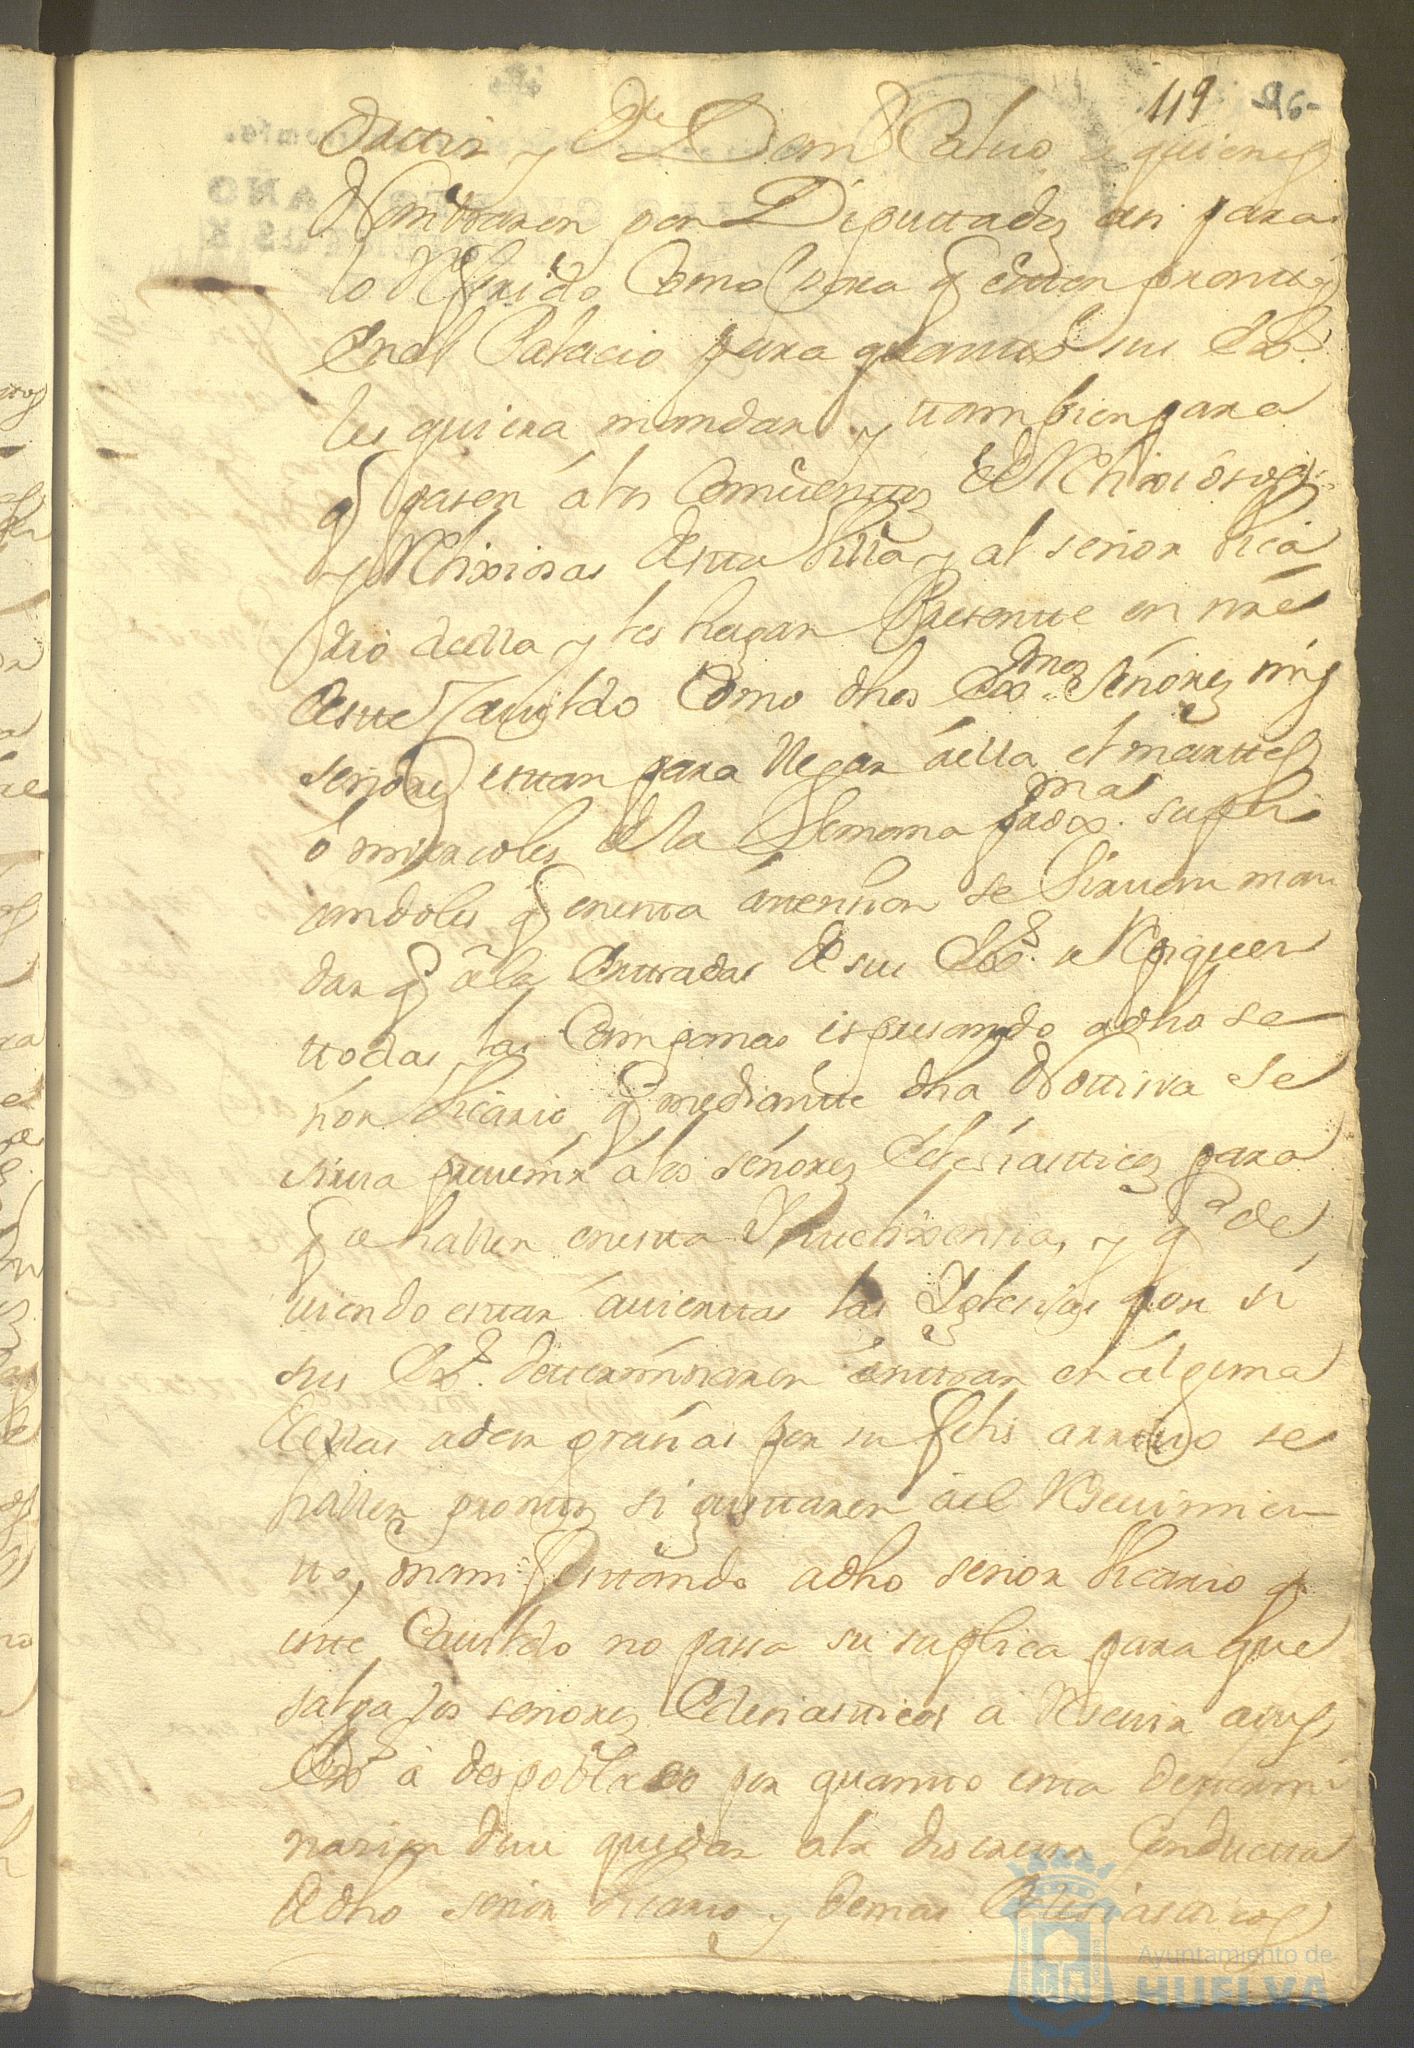 119 96-
y Dn Calvo a quienes
Nombraron por Diputtados asi para
lo Referido Como para q esten promttos
en el Palacio para quantto sus Exas
les quieran mandar y ttambien para
q pasen á los Comventtos de Relixiosos
y Relixiosas destta Villa y al señor Vica
rio della y les hagan Presentte en nre
deste Cavildo Como dhos Exmos Señores mis
señores esttan para llegar áella el marttes
ó miercoles de la Semana proxma supli
cándoles q enestta attension se sirvan man
dar q á las Enttradas de sus Exas se Repiquen
ttodas las Campanas expresando adho se
ñor Vicario q mediantte dha Nottisia se
sirva prevenir álos señores Eclesiastticos para
q se hallen enestta Ynttelixensia, y q de
viendo esttar aviertas las Yglesias por si
sus Exas dettterminaren enttrar en álguna
dellas adar grásias por su felis arrivo se
hallen prontos si gusttaren áel Resevimien
tto, manifesttando adho señor Vicario q
estte Cavildo no passa su suplica para que
salgan los señores Eclesiastticos a Resevir asus
Exas á despoblado por quantto estta determi
nasion deve quedar ala discretta Conductta
de dho señor Vicario y demas Eclesiastticos
Ayuntamiento de
HUELVA